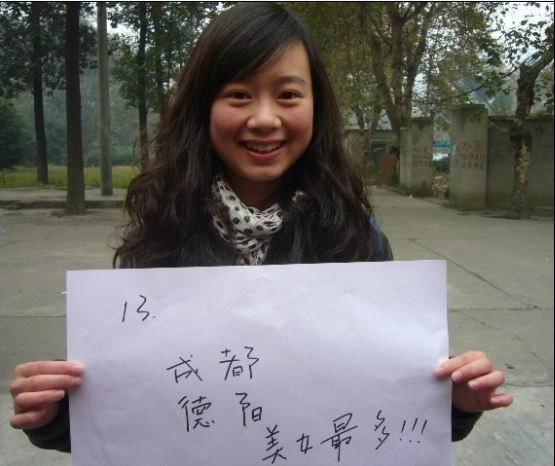 13.
成都
德阳
美女最多!!!